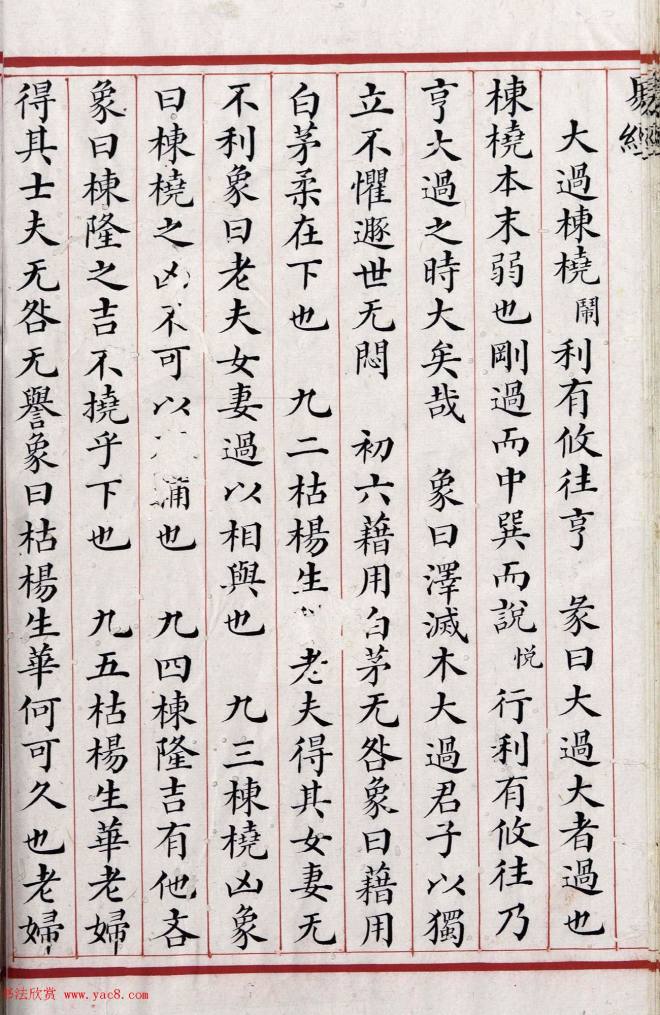 易經
大過棟橈鬧利有攸往亨　彖曰大過大者過也
棟橈本末弱也剛過而中巽而說悅行利有攸往乃
亨大過之時大矣哉　象曰澤滅木大過君子以獨
立不懼遯世无悶　初六藉用白茅无咎象曰藉用
白茅柔在下也　九二枯楊生　老夫得其女妻无
不利象曰老夫女妻過以相與也　九三棟橈凶象
曰棟橈之凶不可以　輔也　九四棟隆吉有他吝
象曰棟隆之吉不撓乎下也　九五枯楊生華老婦
得其士夫无咎无譽象曰枯楊生華何可久也老婦
书法欣赏 www.yac8.com